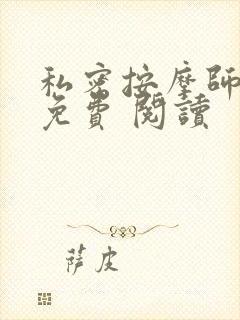 私密按摩師
免費 閱讀
薩皮